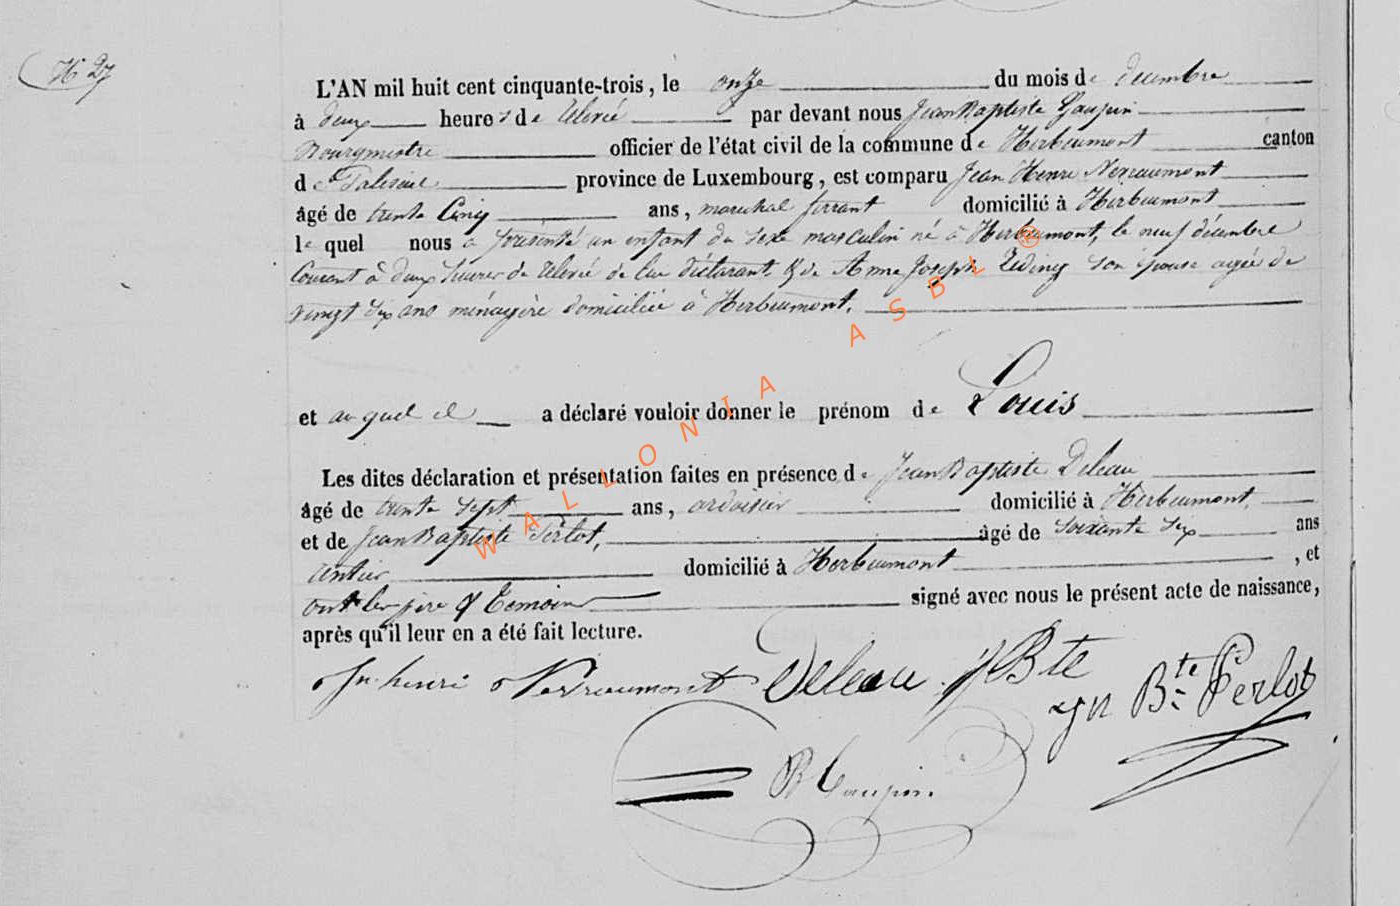 N° 27
L'AN mil huit cent cinquante-trois, le onze du mois de decembre
à deux heures de relevée par devant nous Jean Baptiste
Bourgmestre officier de l'état civil de la commune de Herbeumont canton
de Paliseul province de Luxembourg, est comparu Jean Henri
âgé de trente Cinq ans, marechal ferrant domicilié à Herbeumont
lequel nous a présenté un enfant du sexe masculin né à Herbeumont, le neuf décembre
Courant à deux heures de relevée de lui déclarant & de Anne Joseph son épouse agée de
vingt six ans ménagère domiciliée à Herbeumont.
et auquel il a déclaré vouloir donner le prénom de Louis
Les dites déclaration et présentation faites en présence de Jean Baptiste Deleau
âgé de trente sept ans, ardoisier domicilié à Herbeumont,
et de Jean Baptiste Perlot, âgé de soixante six ans
domicilié à Herbeumont, et
ont les père & temoins signé avec nous le présent acte de naissance,
après qu'il leur en a été fait lecture.
Jn henri Deleau j Bte
jn Bte Perlot
WALLONIA ASBL ®